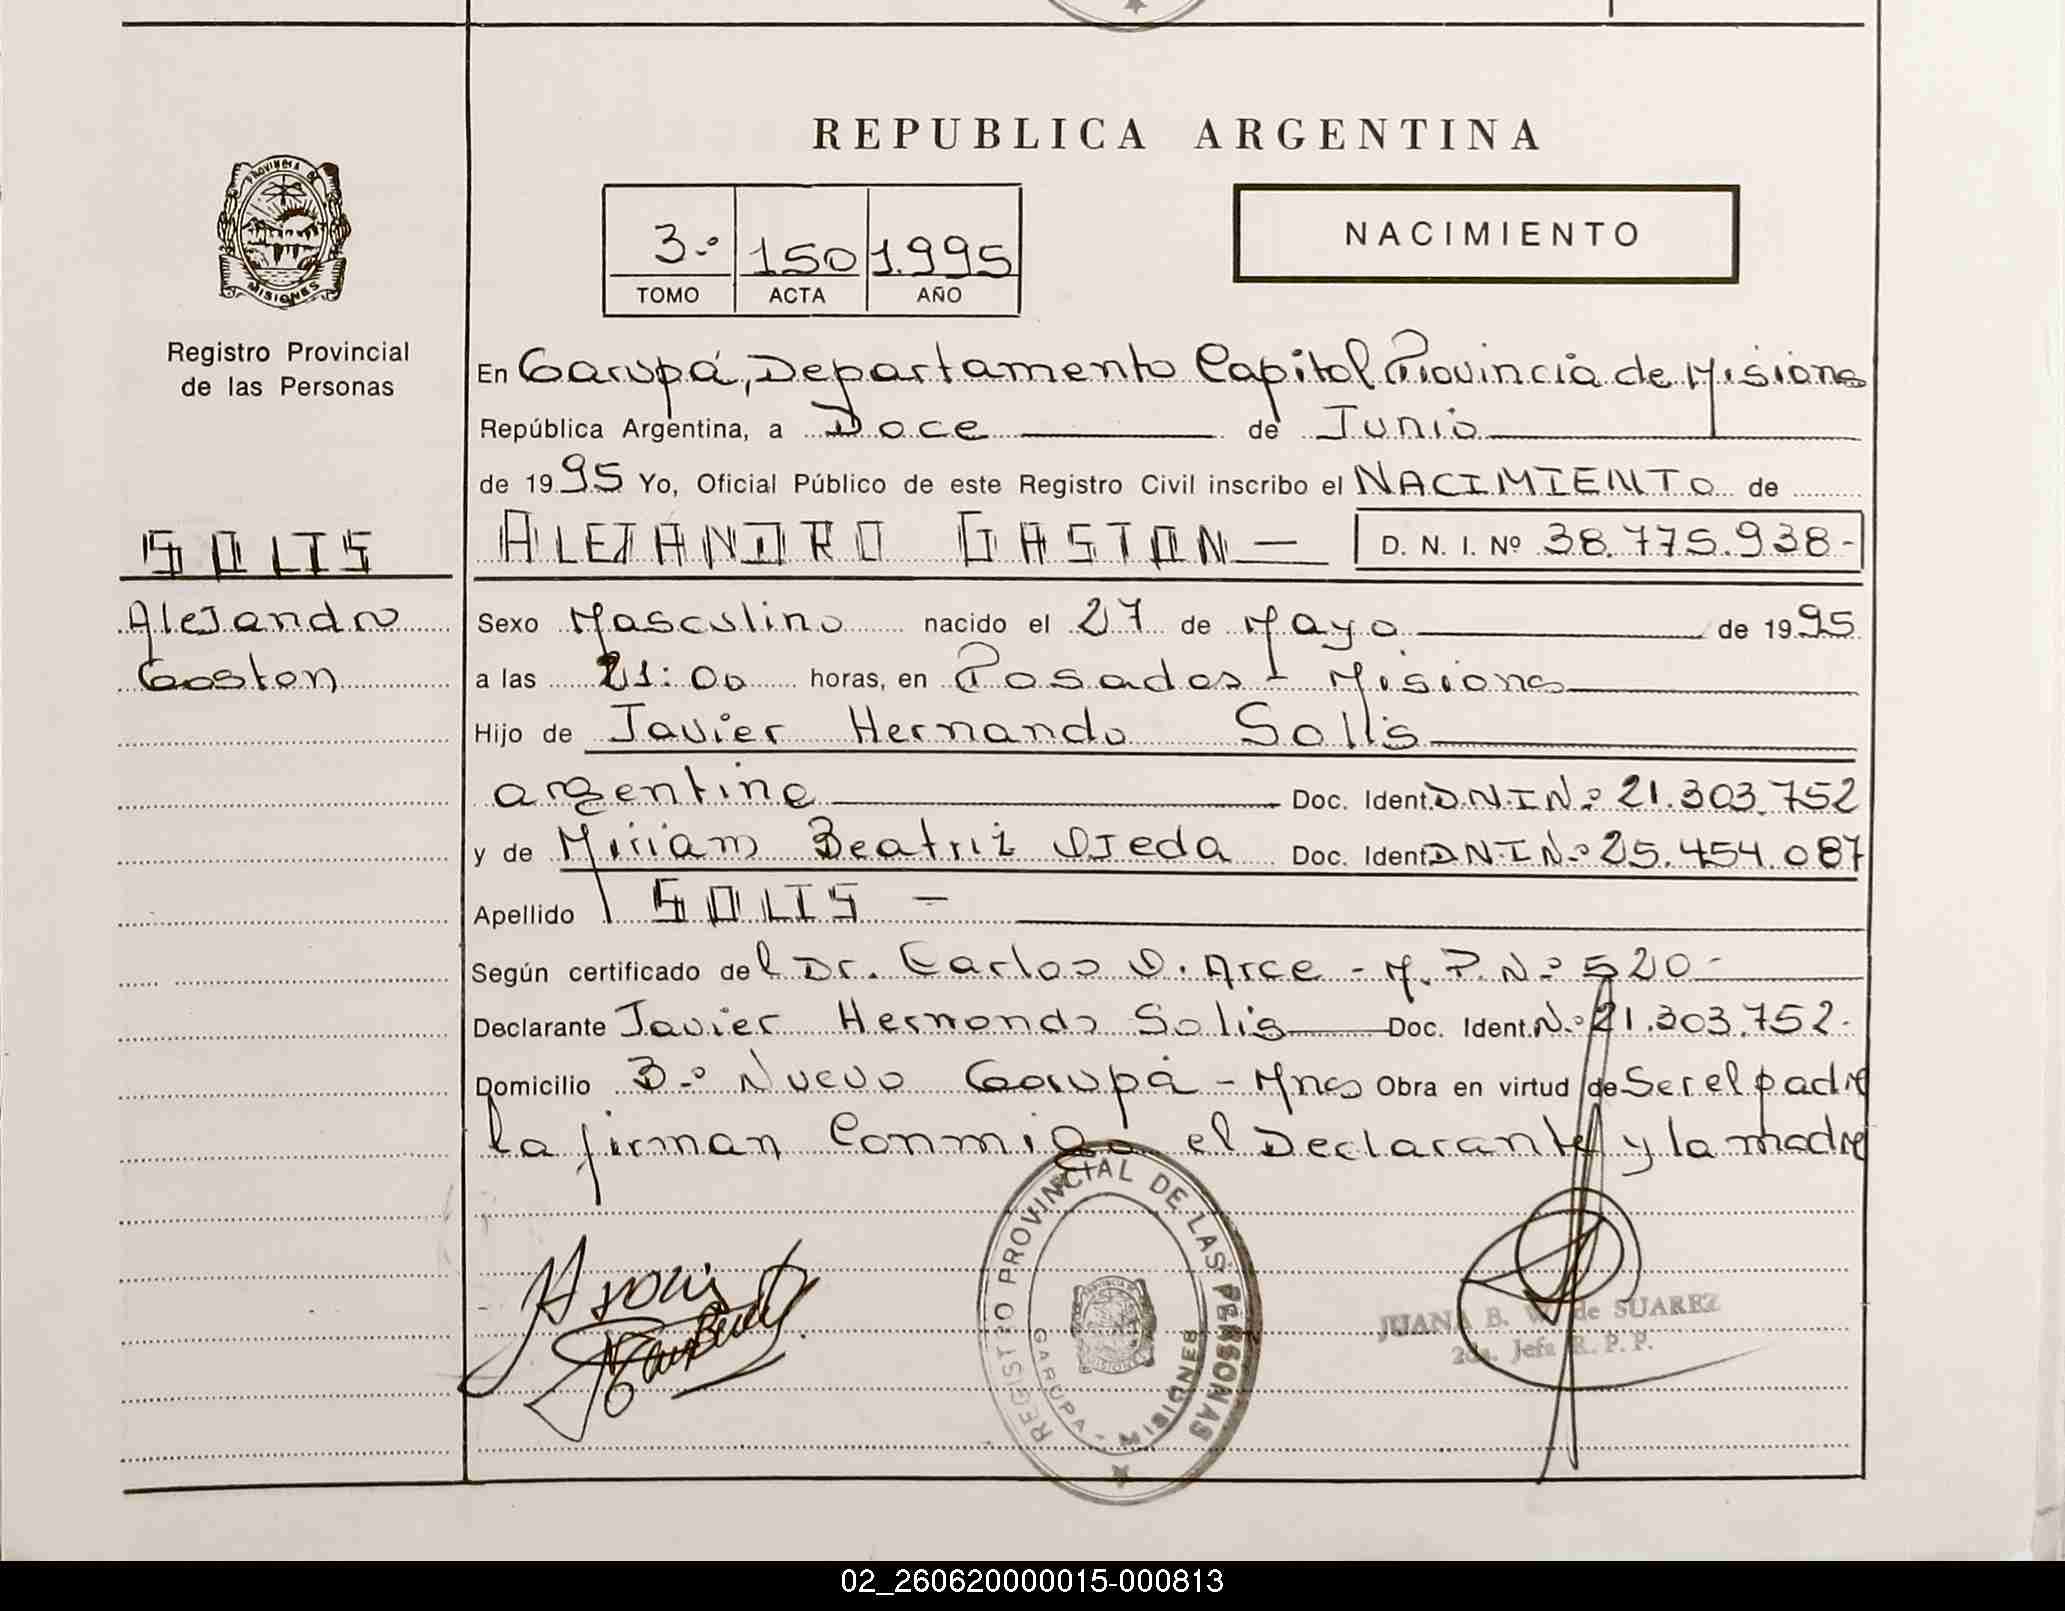 REPUBLICA ARGENTINA
PROVINCIA DE
MISIONES
Registro Provincial
de las Personas
3.º 150 1.995
TOMO ACTA AÑO
NACIMIENTO
En Garupá, Departamento Capital Provincia de Misiones
República Argentina, a Doce de Junio
de 1995 Yo, Oficial Público de este Registro Civil inscribo el NACIMIENTO de
SOLIS
ALEJANDRO GASTON — D. N. I. Nº 38.775.938-
Alejandro
Gaston
Sexo Masculino nacido el 27 de Mayo de 1995
a las 21:00 horas, en Posadas - Misiones
Hijo de Javier Hernando Solis
argentino Doc. Ident. D.N.I N.º 21.303.752
y de Miriam Beatriz Ojeda Doc. Ident. D.N.I N.º 25.454.087
Apellido SOLIS -
Según certificado del Dr. Carlos O. Arce - M.P.N.º 520-
Declarante Javier Hernando Solis Doc. Ident. N.º 21.303.752-
Domicilio B.º Nuevo Garupá - Mnes Obra en virtud de Ser el padre
la firman Conmigo el Declarante y la madre
REGISTRO PROVINCIAL DE LAS PERSONAS
GARUPA - MISIONES
JUANA B. W. de SUAREZ
2da. Jefa R. P. P.
02_260620000015-000813